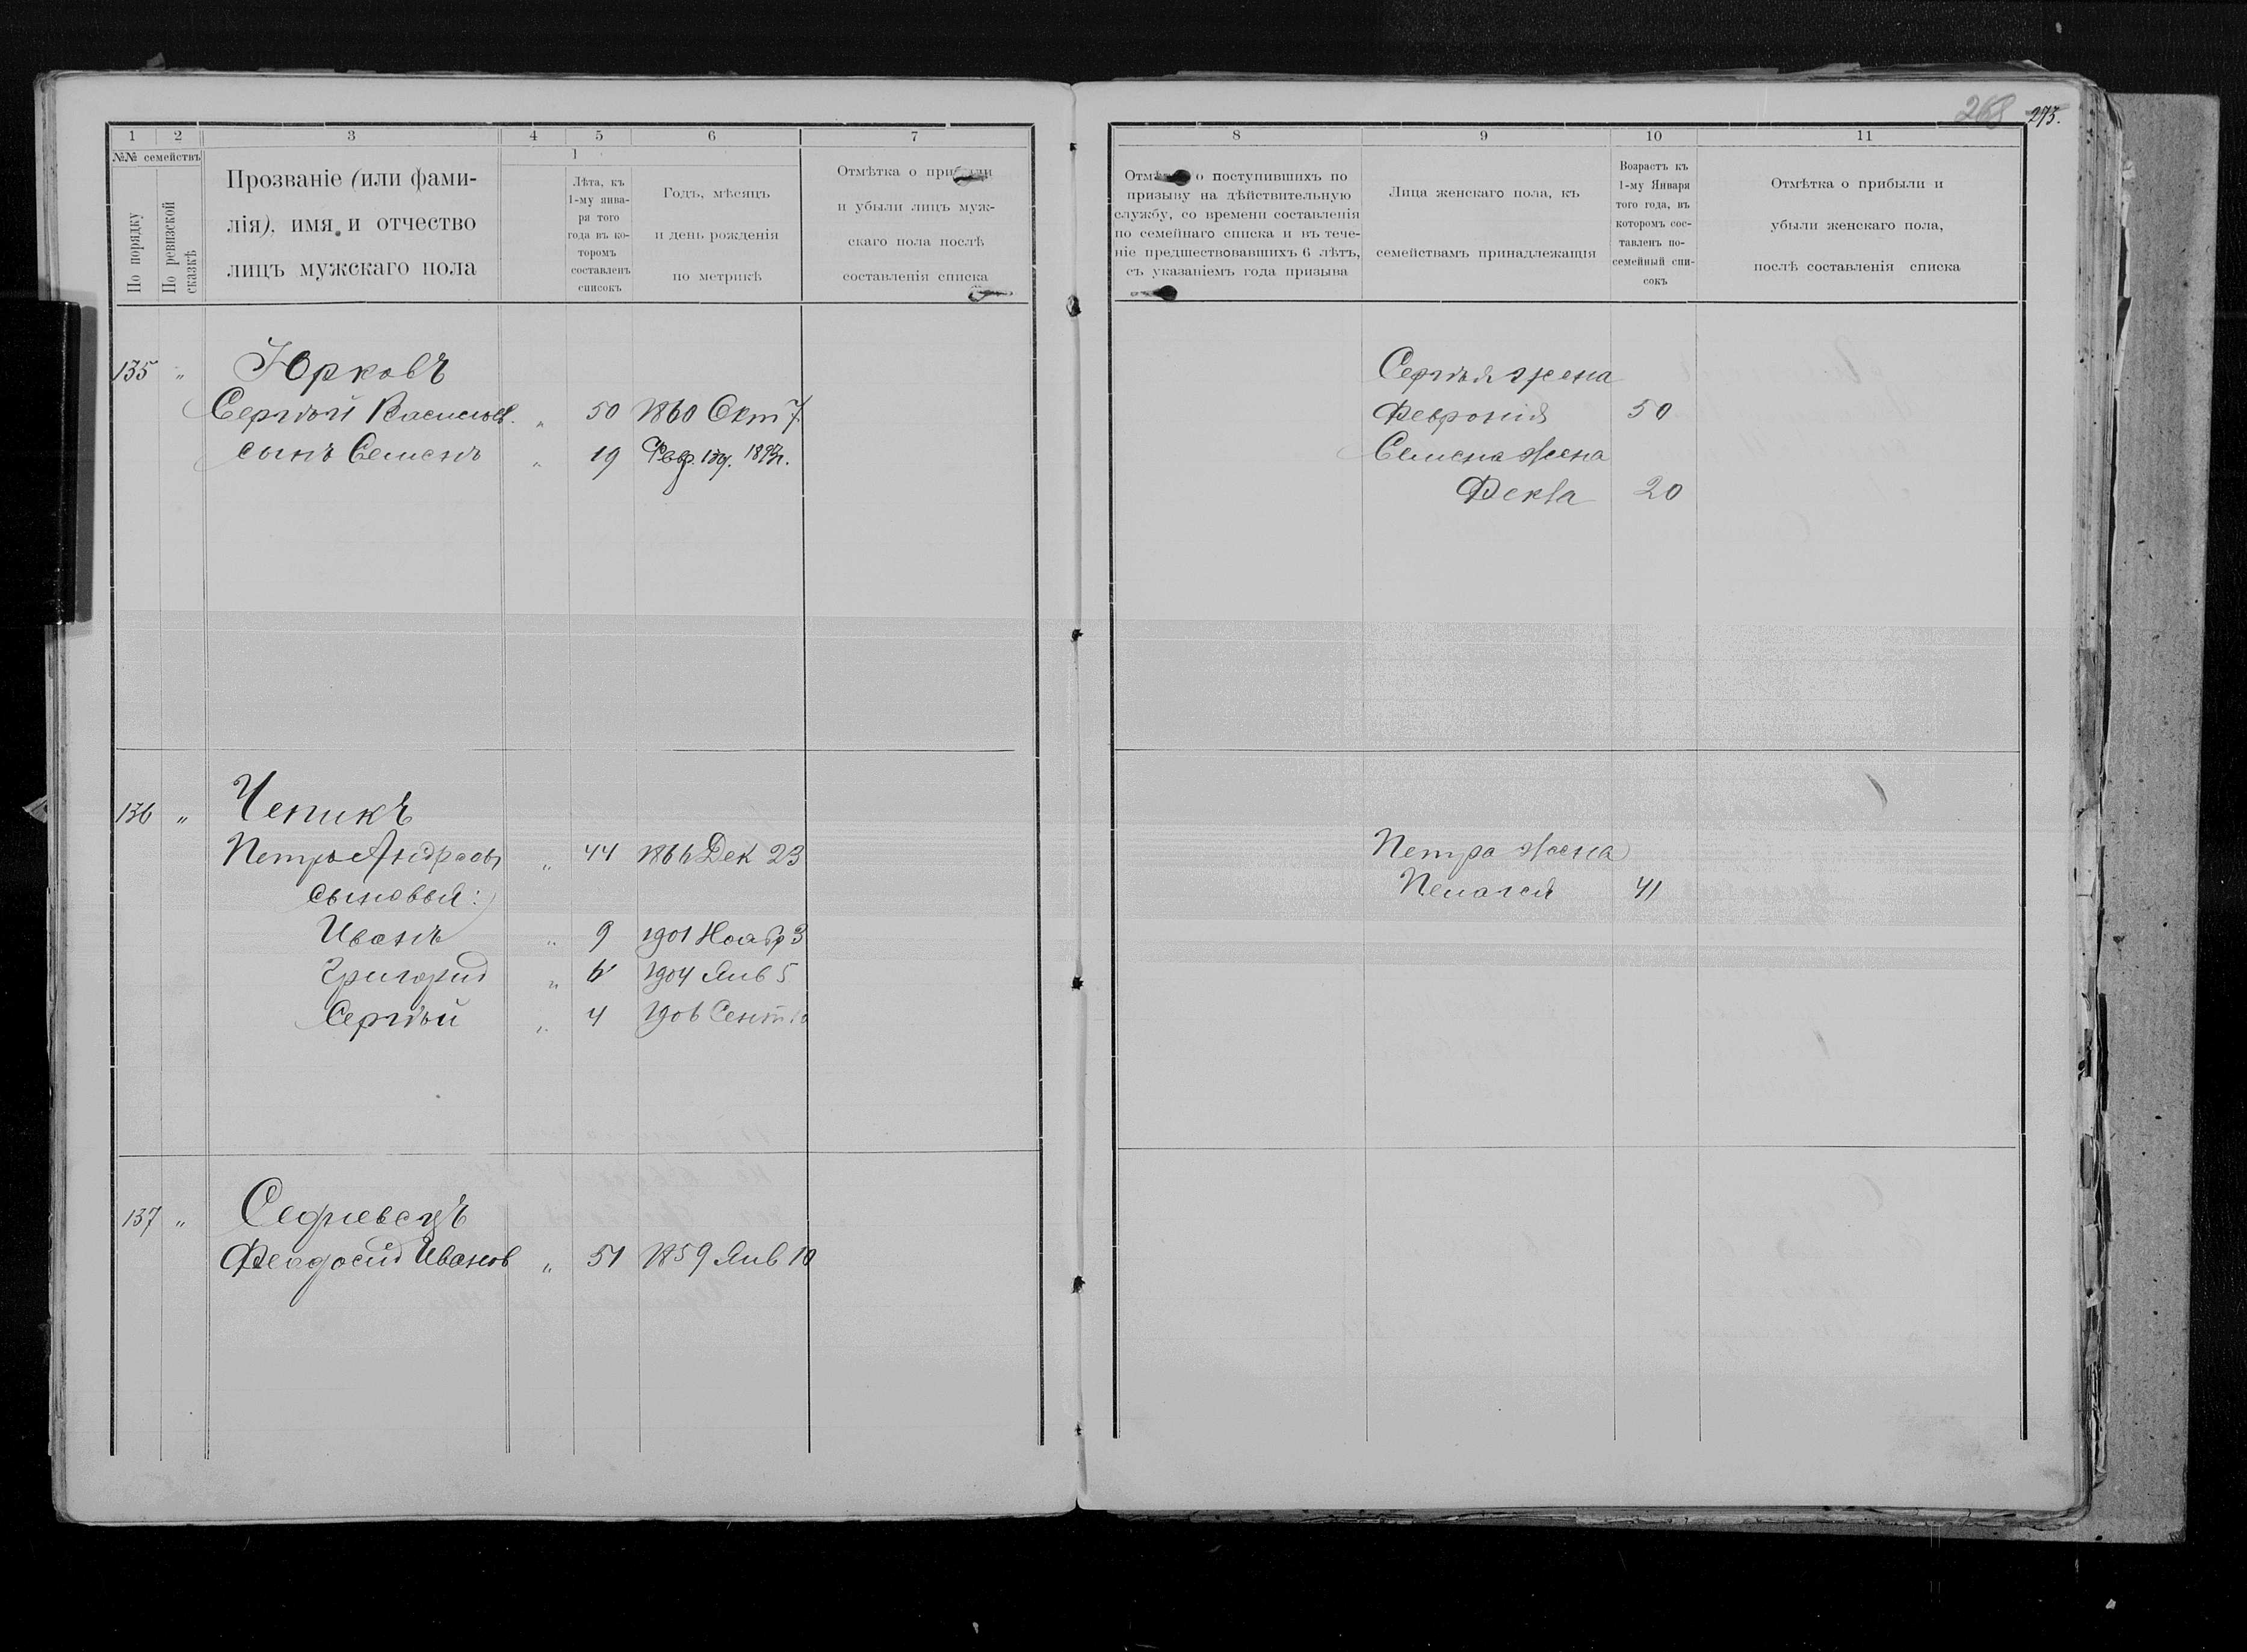 268 273.
1 2 3 4 5 6 7
№№ семействъ
По порядку
По ревизской сказкѣ
Прозваніе (или фами-
лія), имя и отчество
лицъ мужскаго пола
1
Лѣта, къ
1-му янва-
ря того
года въ ко-
торомъ
составленъ
списокъ
Годъ, мѣсяцъ
и день рожденія
по метрикѣ
Отмѣтка о прибыли
и убыли лицъ муж-
скаго пола послѣ
составленія списка
135 " Юрковъ
Сергѣй Васильев. " 50 1860 Окт 7
сынъ Семенъ " 19 Февр. 1893г.
136 " Чепикъ
Петръ Андреевъ " 44 1866 Дек 23
сыновья:
Иванъ " 9 1901 Ноабр 3
Григорій " 6 1904 Янв 5
Сергѣй " 4 1906 Сент 10
137 "
Феодосій Иванов " 51 1859 Янв 10
8 9 10 11
Отмѣтка о поступившихъ по
призыву на дѣйствительную
службу, со времени составленія
по семейнаго списка и въ тече-
ніе предшествовавшихъ 6 лѣтъ,
съ указаніемъ года призыва
Лица женскаго пола, къ
семействамъ принадлежащія
Возрастъ къ
1-му Января
того года, въ
которомъ сос-
тавленъ по-
семейный спи-
сокъ
Отмѣтка о прибыли и
убыли женскаго пола,
послѣ составленія списка
Сергѣя жена
Февронія 50
Семена жена
Фекла 20
Петра жена
Пелагея 41